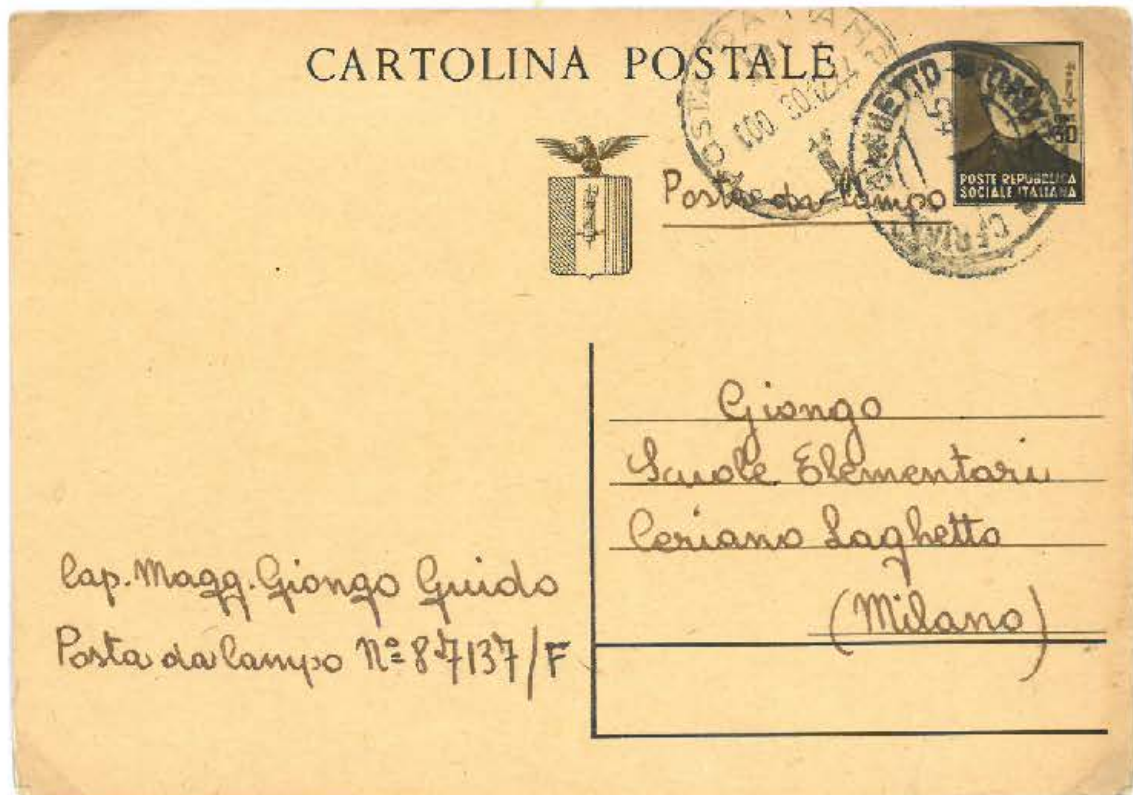 CARTOLINA POSTALE
POSTE REPUBBLICA
SOCIALE ITALIANA
Posta da Campo
Giongo
Scuole Elementari
Ceriano Laghetto
(Milano)
Cap. Magg. Giongo Guido
Posta da Campo Nº 87137/F